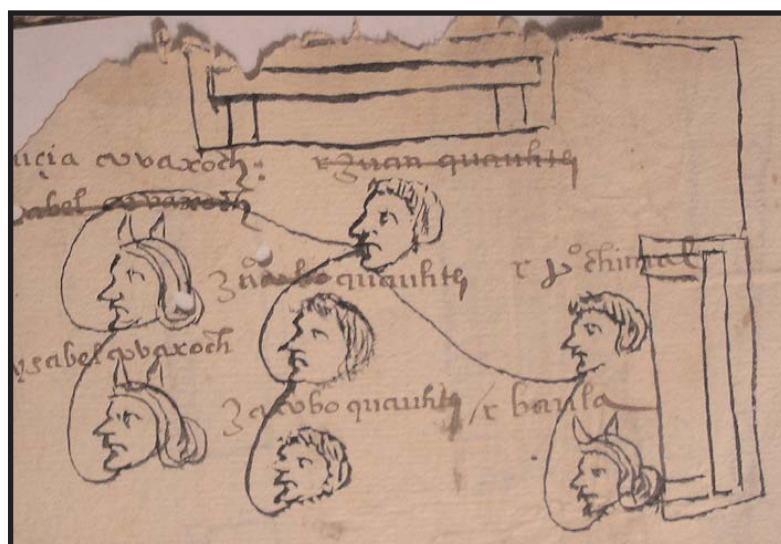 uçia covaxoch:
r Juan quauhteq
sabel covaxoch
quauhteq
r pº chimal
ysabel covaxoch
Jacobo quauhteq / r baula